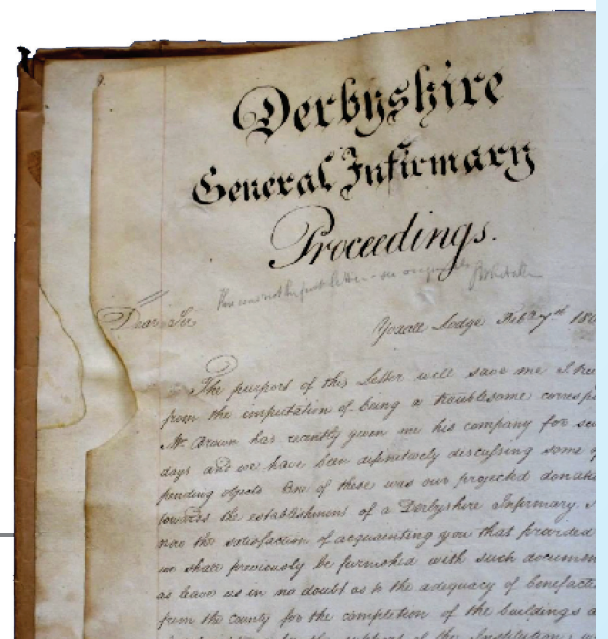 Derbyshire
General Infirmary
Proceedings.
This was not the first letter - see originals
Dear Sir
Yoxall Lodge Feb 27th 180
The purport of this Letter will save me I
from the imputation of being a troublesome corresp
Mr. Brown has recently given us his company for
days and we have been definitively discussing some of
pending objects One of these was our projected donat
towards the establishment of a Derbyshire Infirmary.
now the satisfaction of acquainting you that provided
we shall previously be furnished with such documen
as leave us in no doubt as to the adequacy of benefact
from the county for the completion of the buildings